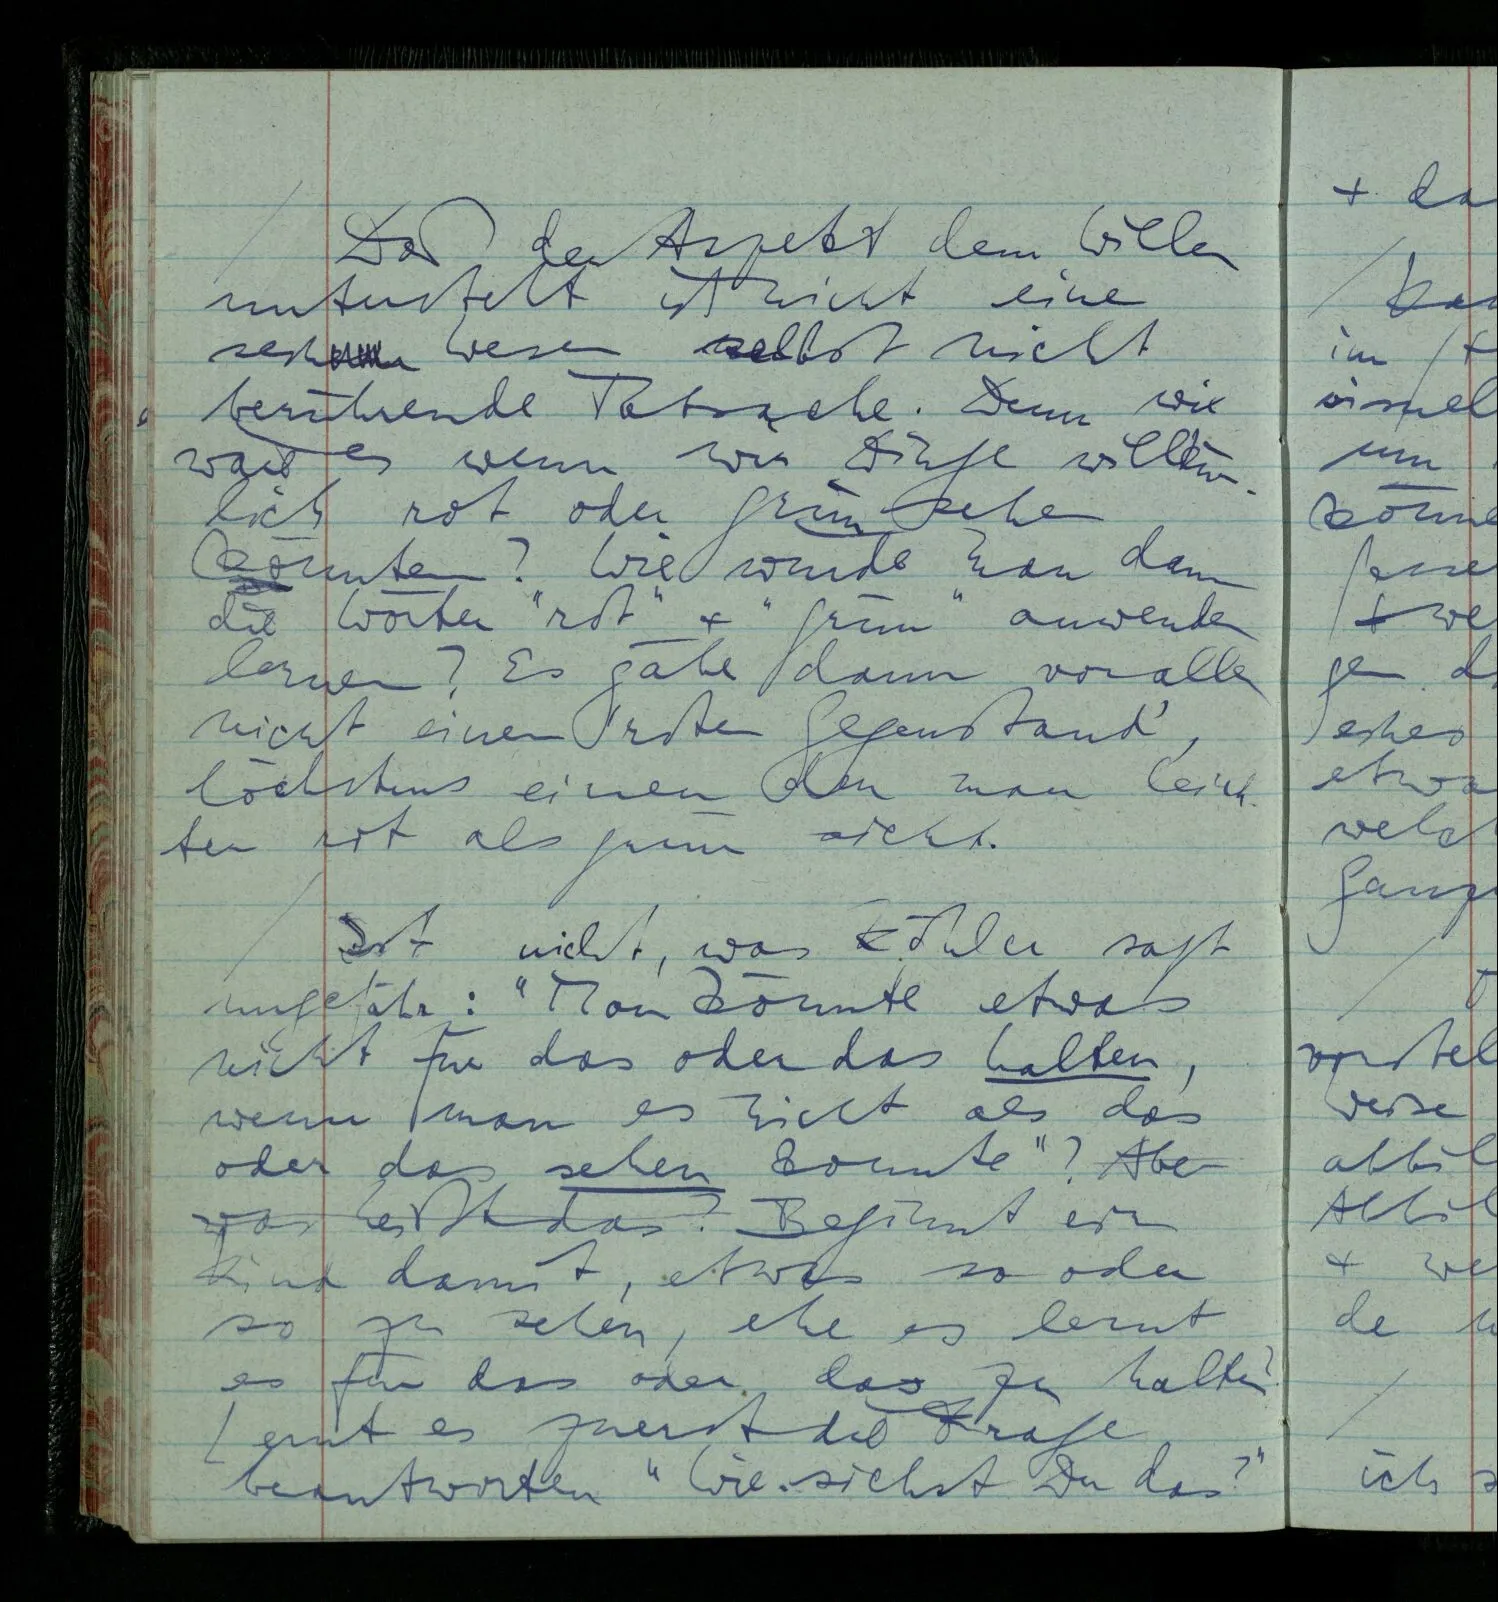 Daß der Aspekt dem Willen
untersteht ist nicht eine
sein Wesen selbst nicht
berührende Tatsache. Denn wie
wär es wenn wir Dinge willkür-
lich rot oder grün sehen
könnten? Wie würde man dann
die Wörter "rot" + "grün" anwenden
lernen? Es gäbe dann vor allem
nicht einen 'roten Gegenstand',
höchstens einen den man leich-
ter rot als grün sieht.
Ist nicht, was Köhler sagt
ungefähr: "Man könnte etwas
nicht für das oder das halten,
wenn man es nicht als das
oder das sehen könnte"? Aber
was heißt das? Beginnt ein
Kind damit, etwas so oder
so zu sehen, ehe es lernt
es für das oder das zu halten?
Lernt es zuerst die Frage
beantworten "Wie siehst Du das?"
+ da
im
visuel
um
könne
+ we
gen
etwa
welch
Ganz
vorstel
weise
abbil
Abbil
+ we
de
ich s